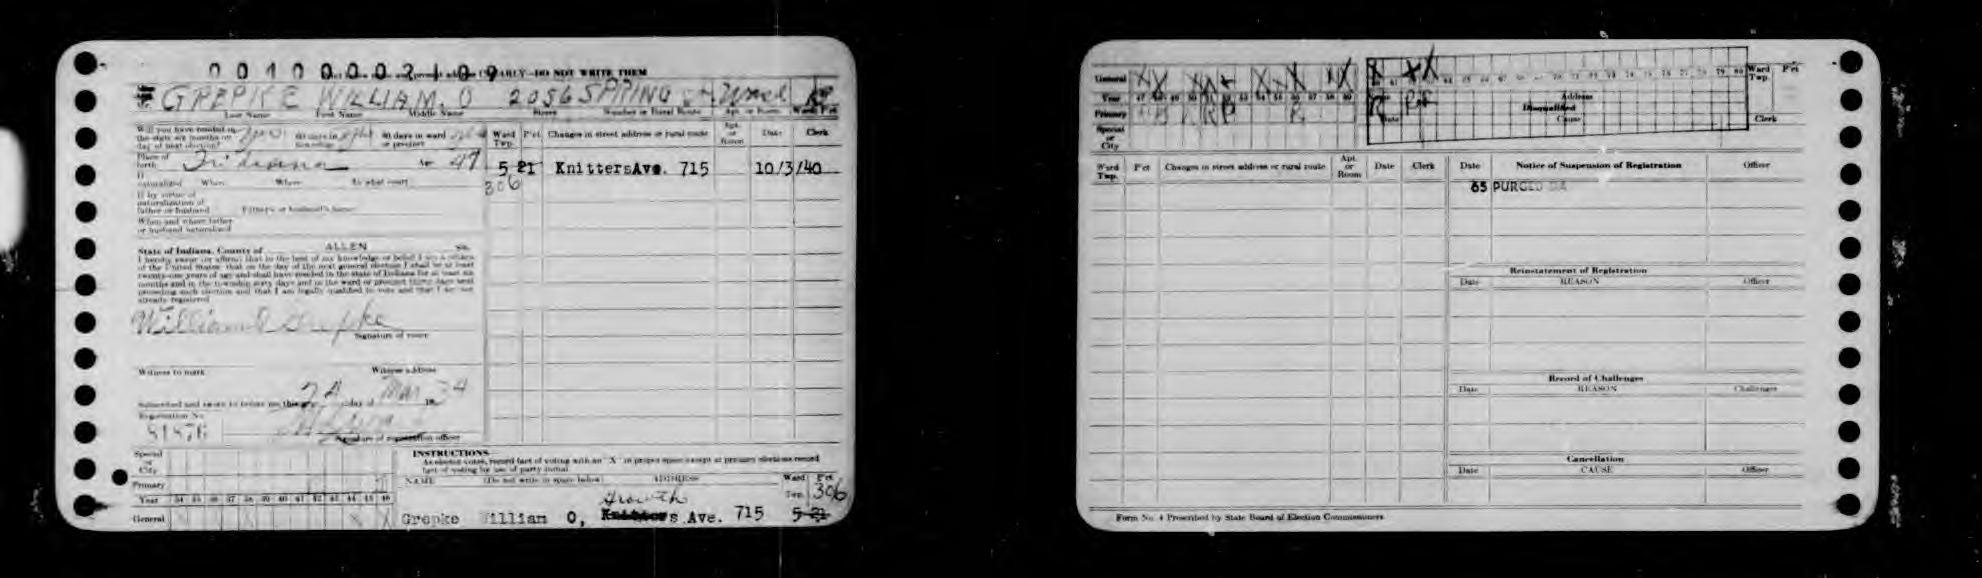 001000 02109
CLEARLY—DO NOT WRITE THEM
GREPKE WILLIAM. O 2056 SPRING St
Last Name First Name Middle Name Street Number or Rural Route Apt. or Room Ward Pct
Will you have resided in the state six months on day of next election? 60 days in township 30 days in ward or precinct
Ward Twp. Pct Changes in street address or rural route Apt. or Room Date Clerk
Place of birth Indiana Age 47
5 21 KnittersAve. 715 10/3/40
306
If naturalized When Where In what court
If by virtue of naturalization of father or husband Father's or husband's name
When and where father or husband naturalized
State of Indiana, County of ALLEN SS.
I hereby swear (or affirm) that to the best of my knowledge or belief I am a citizen
of the United States; that on the day of the next general election I shall be at least
twenty-one years of age and shall have resided in the state of Indiana for at least six
months and in the township sixty days and in the ward or precinct thirty days next
preceding such election and that I am legally qualified to vote and that I am not
already registered
William O Grepke
Signature of voter
Witness to mark Witness address
Subscribed and sworn to before me this day of Mar 1934
Registration No.
Signature of registration officer
Special or City
Primary
Year 34 35 36 37 38 39 40 41 42 43 44 45 46
General X X
INSTRUCTIONS
As elector votes, record fact of voting with an "X" in proper space except at primary elections record
fact of voting by use of party initial
NAME (Do not write in space below) ADDRESS Ward Twp. Pct
306
Growth
Grepke William O, Knitters Ave. 715 5 21
General X X X X X X X X X X X
Year 47 48 49 50 51 52 53 54 55 56 57 58 59
Primary R R R R
Special or City
Address
Disqualified
Date Cause Clerk
Ward Twp. Pct
Ward Twp. Pct Changes in street address or rural route Apt. or Room Date Clerk
Date Notice of Suspension of Registration Officer
65 PURGED
Reinstatement of Registration
Date REASON Officer
Record of Challenges
Date REASON Challenger
Cancellation
Date CAUSE Officer
Form No. 4 Prescribed by State Board of Election Commissioners